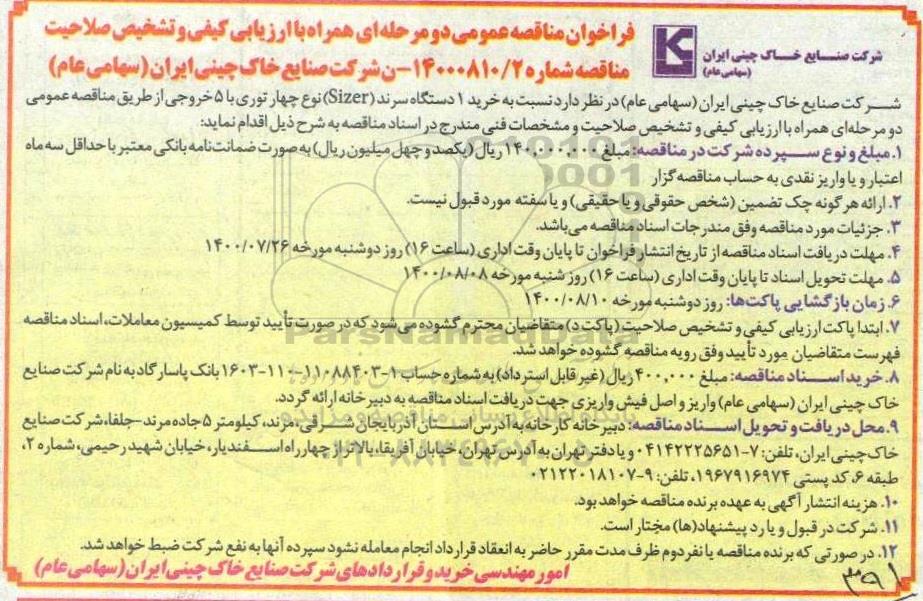 فراخوان مناقصه عمومی دو مرحله ای همراه با ارزیابی کیفی و تشخیص صلاحیت
مناقصه شماره ۱۴۰۰۰۸۱۰/۲-ن شرکت صنایع خاک چینی ایران (سهامی عام)
شرکت صنایع خاک چینی ایران
(سهامی عام)
شرکت صنایع خاک چینی ایران (سهامی عام) در نظر دارد نسبت به خرید ۱ دستگاه سرند (Sizer) نوع چهار توری با ۵ خروجی از طریق مناقصه عمومی
دو مرحله‌ای همراه با ارزیابی کیفی و تشخیص صلاحیت و مشخصات فنی مندرج در اسناد مناقصه به شرح ذیل اقدام نماید:
۱. مبلغ و نوع سپرده شرکت در مناقصه: مبلغ ۱۴۰,۰۰۰,۰۰۰ ریال (یکصد و چهل میلیون ریال) به صورت ضمانت نامه بانکی معتبر با حداقل سه ماه
اعتبار و یا واریز نقدی به حساب مناقصه گزار
۲. ارائه هر گونه چک تضمین (شخص حقوقی و یا حقیقی) و یا سفته مورد قبول نیست.
۳. جزئیات مورد مناقصه وفق مندرجات اسناد مناقصه می‌باشد.
۴. مهلت دریافت اسناد مناقصه از تاریخ انتشار فراخوان تا پایان وقت اداری (ساعت ۱۶) روز دوشنبه مورخه ۱۴۰۰/۰۷/۲۶
۵. مهلت تحویل اسناد تا پایان وقت اداری (ساعت ۱۶) روز شنبه مورخه ۱۴۰۰/۰۸/۰۸
۶. زمان بازگشایی پاکت‌ها: روز دوشنبه مورخه ۱۴۰۰/۰۸/۱۰
۷. ابتدا پاکت ارزیابی کیفی و تشخیص صلاحیت (پاکت د) متقاضیان محترم گشوده می‌شود که در صورت تأیید توسط کمیسیون معاملات، اسناد مناقصه
فهرست متقاضیان مورد تأیید وفق رویه مناقصه گشوده خواهد شد.
۸. خرید اسناد مناقصه: مبلغ ۴۰۰,۰۰۰ ریال (غیر قابل استرداد) به شماره حساب ۱-۱۱۰۸۸۴۰۳-۱۱۰-۱۶۰۳ بانک پاسارگاد به نام شرکت صنایع
خاک چینی ایران (سهامی عام) واریز و اصل فیش واریزی جهت دریافت اسناد مناقصه به دبیرخانه ارائه گردد.
۹. محل دریافت و تحویل اسناد مناقصه: دبیرخانه کارخانه به آدرس استان آذربایجان شرقی، مرند، کیلومتر ۵ جاده مرند-جلفا، شرکت صنایع
خاک چینی ایران، تلفن: ۷-۰۴۱۴۲۲۲۵۶۵۱ و یا دفتر تهران به آدرس تهران، خیابان آفریقا، بالاتر از چهارراه اسفندیار، خیابان شهید رحیمی، شماره ۲،
طبقه ۶، کد پستی ۱۹۶۷۹۱۶۹۷۴، تلفن: ۹-۰۲۱۲۲۰۱۸۱۰۷
۱۰. هزینه انتشار آگهی به عهده برنده مناقصه خواهد بود.
۱۱. شرکت در قبول و یا رد پیشنهاد(ها) مختار است.
۱۲. در صورتی که برنده مناقصه یا نفر دوم ظرف مدت مقرر حاضر به انعقاد قرارداد انجام معامله نشود سپرده آنها به نفع شرکت ضبط خواهد شد.
امور مهندسی خرید و قراردادهای شرکت صنایع خاک چینی ایران (سهامی عام)
ParsNamadData